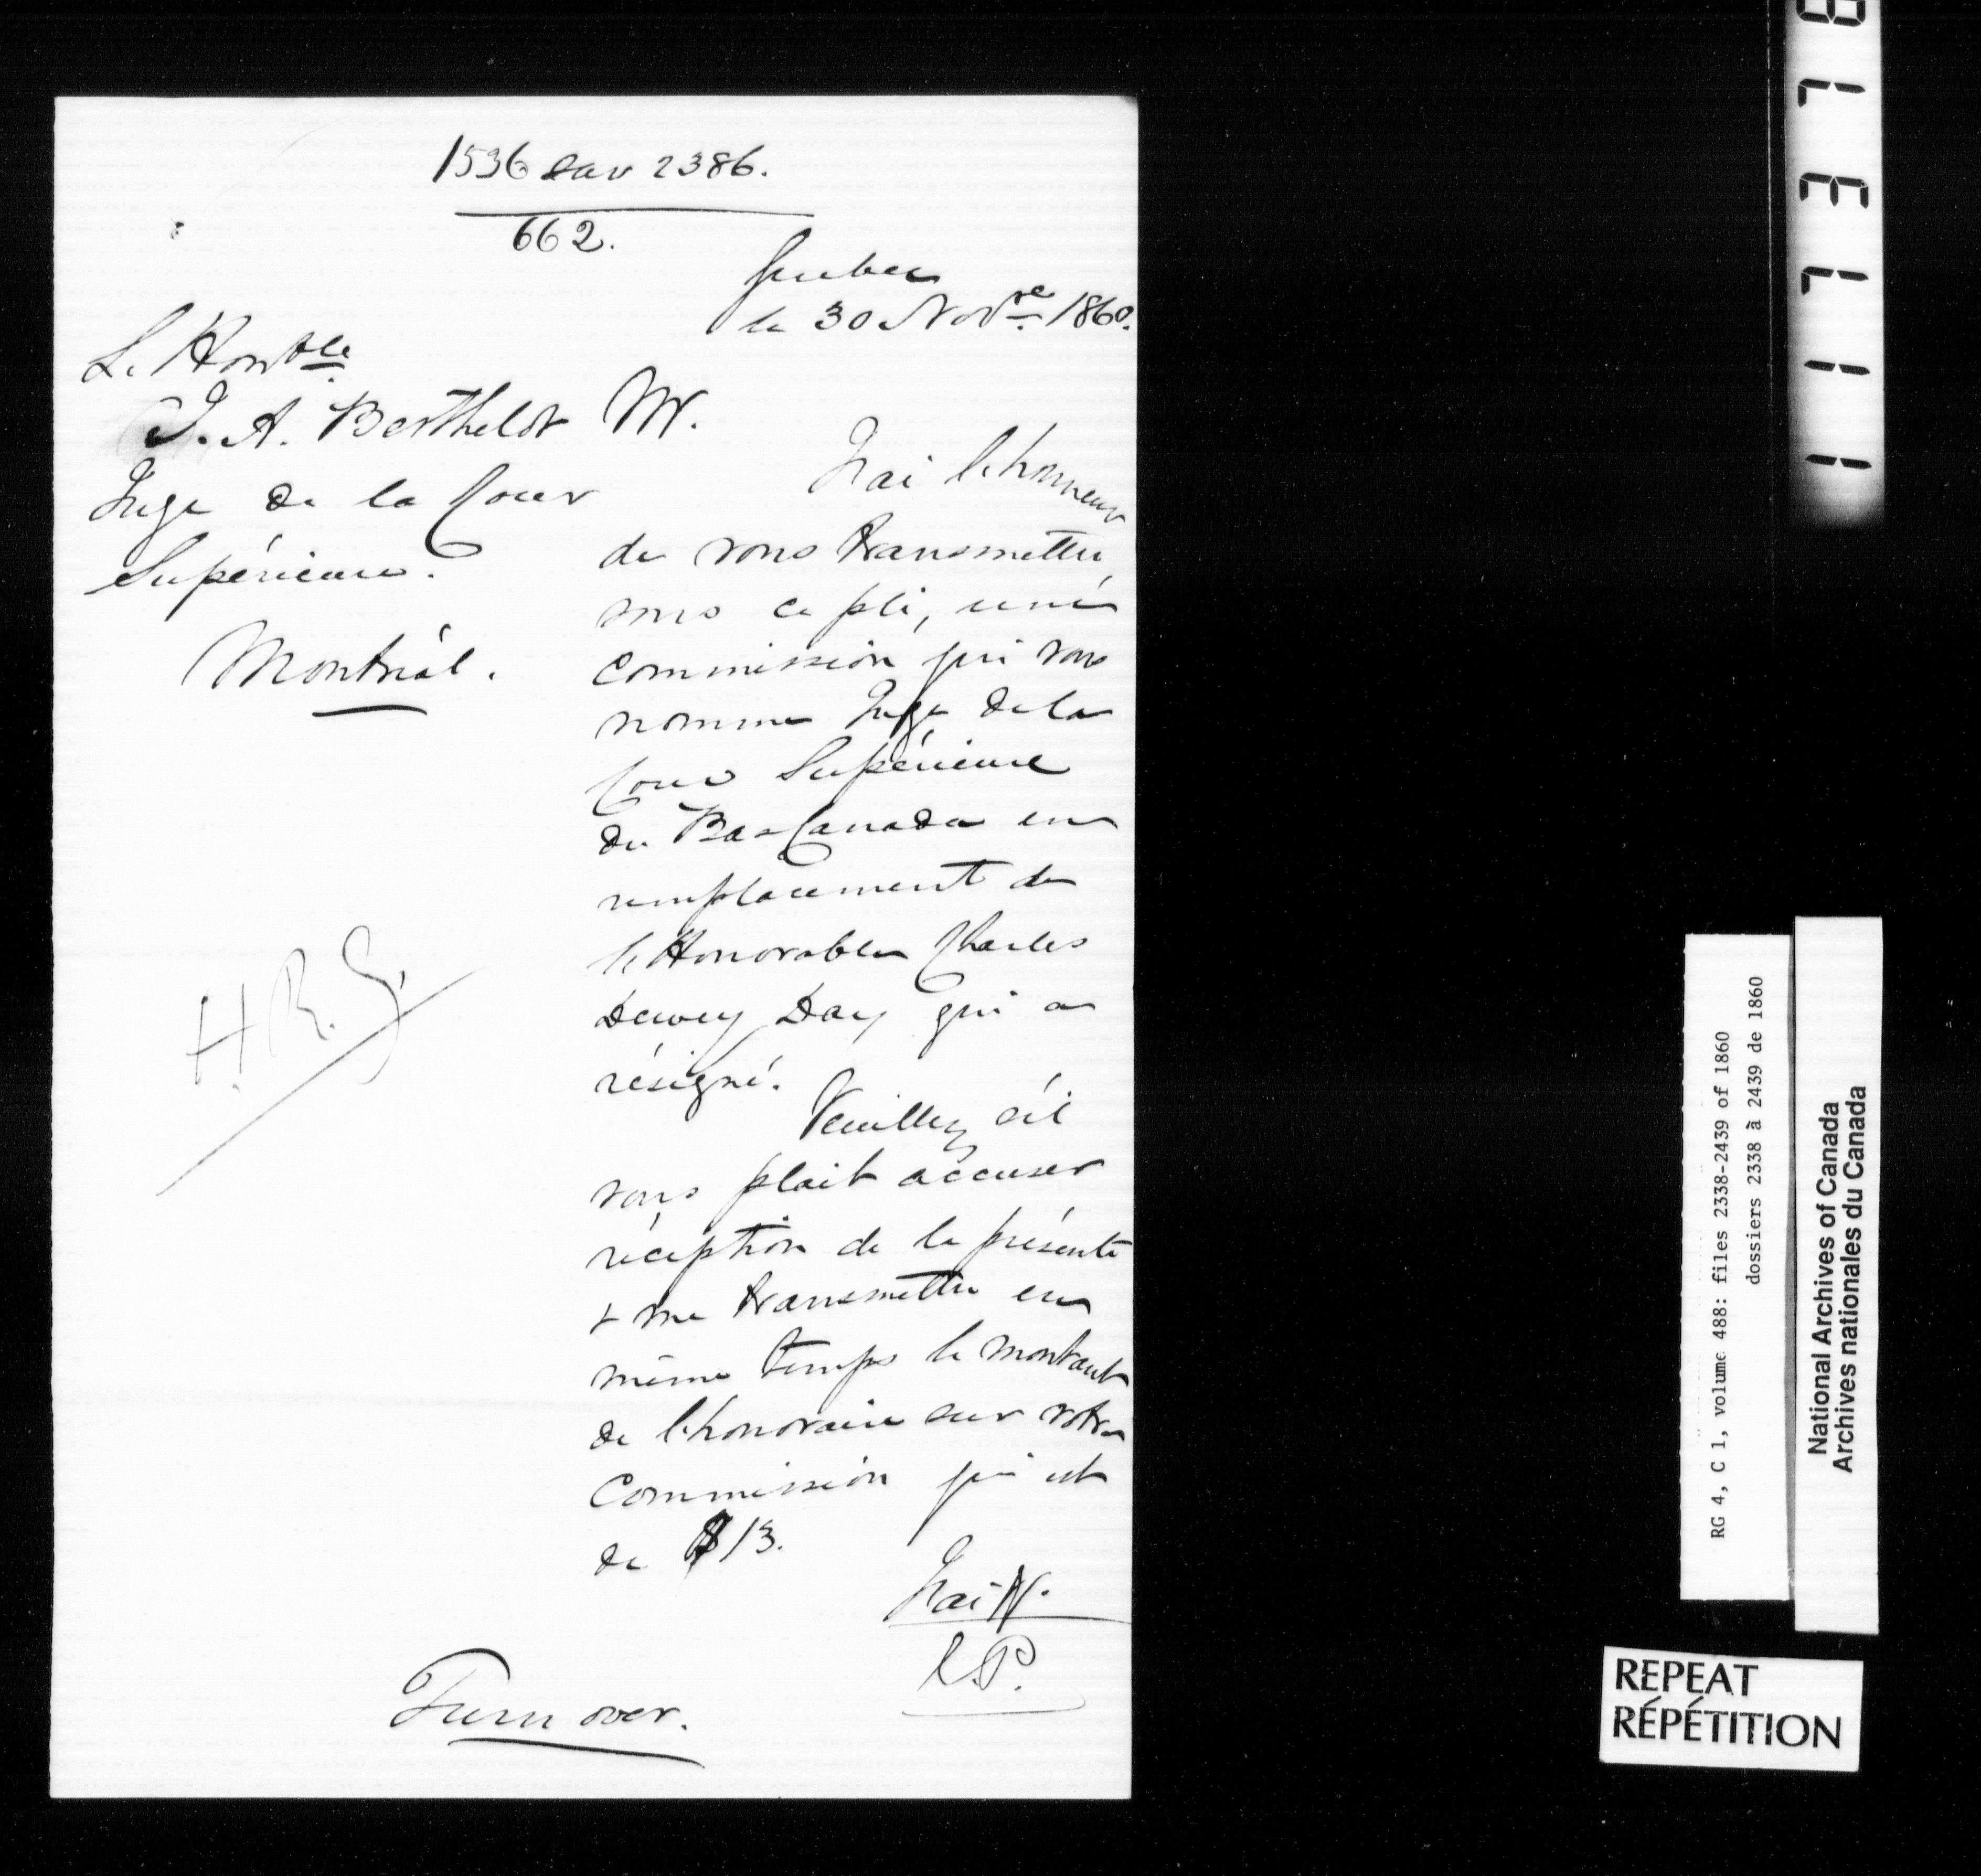 1536 sur 2386.
662.
Quebec
le 30 Novre 1860.
L'Honble
J. A. Berthelot
Juge de la Cour
Supérieure.
Montréal.
Mr.
J'ai l'honneur
de vous transmettre,
sous ce pli, une
Commission qui vous
nomme Juge de la
Cour Supérieure
du Bas Canada en
remplacement de
l'Honorable Charles
Dewey Day qui a
résigné.
Veuillez s'il
vous plait accuser
réception de la présente
& me transmettre en
même temps le montant
de l'honoraire sur votre
Commission qui est
de $13.
J'ai
H.R.G.
Turn over.
117378
RG 4, C 1, volume 488: files 2338-2439 of 1860
dossiers 2338 à 2439 de 1860
National Archives of Canada
Archives nationales du Canada
REPEAT
RÉPÉTITION